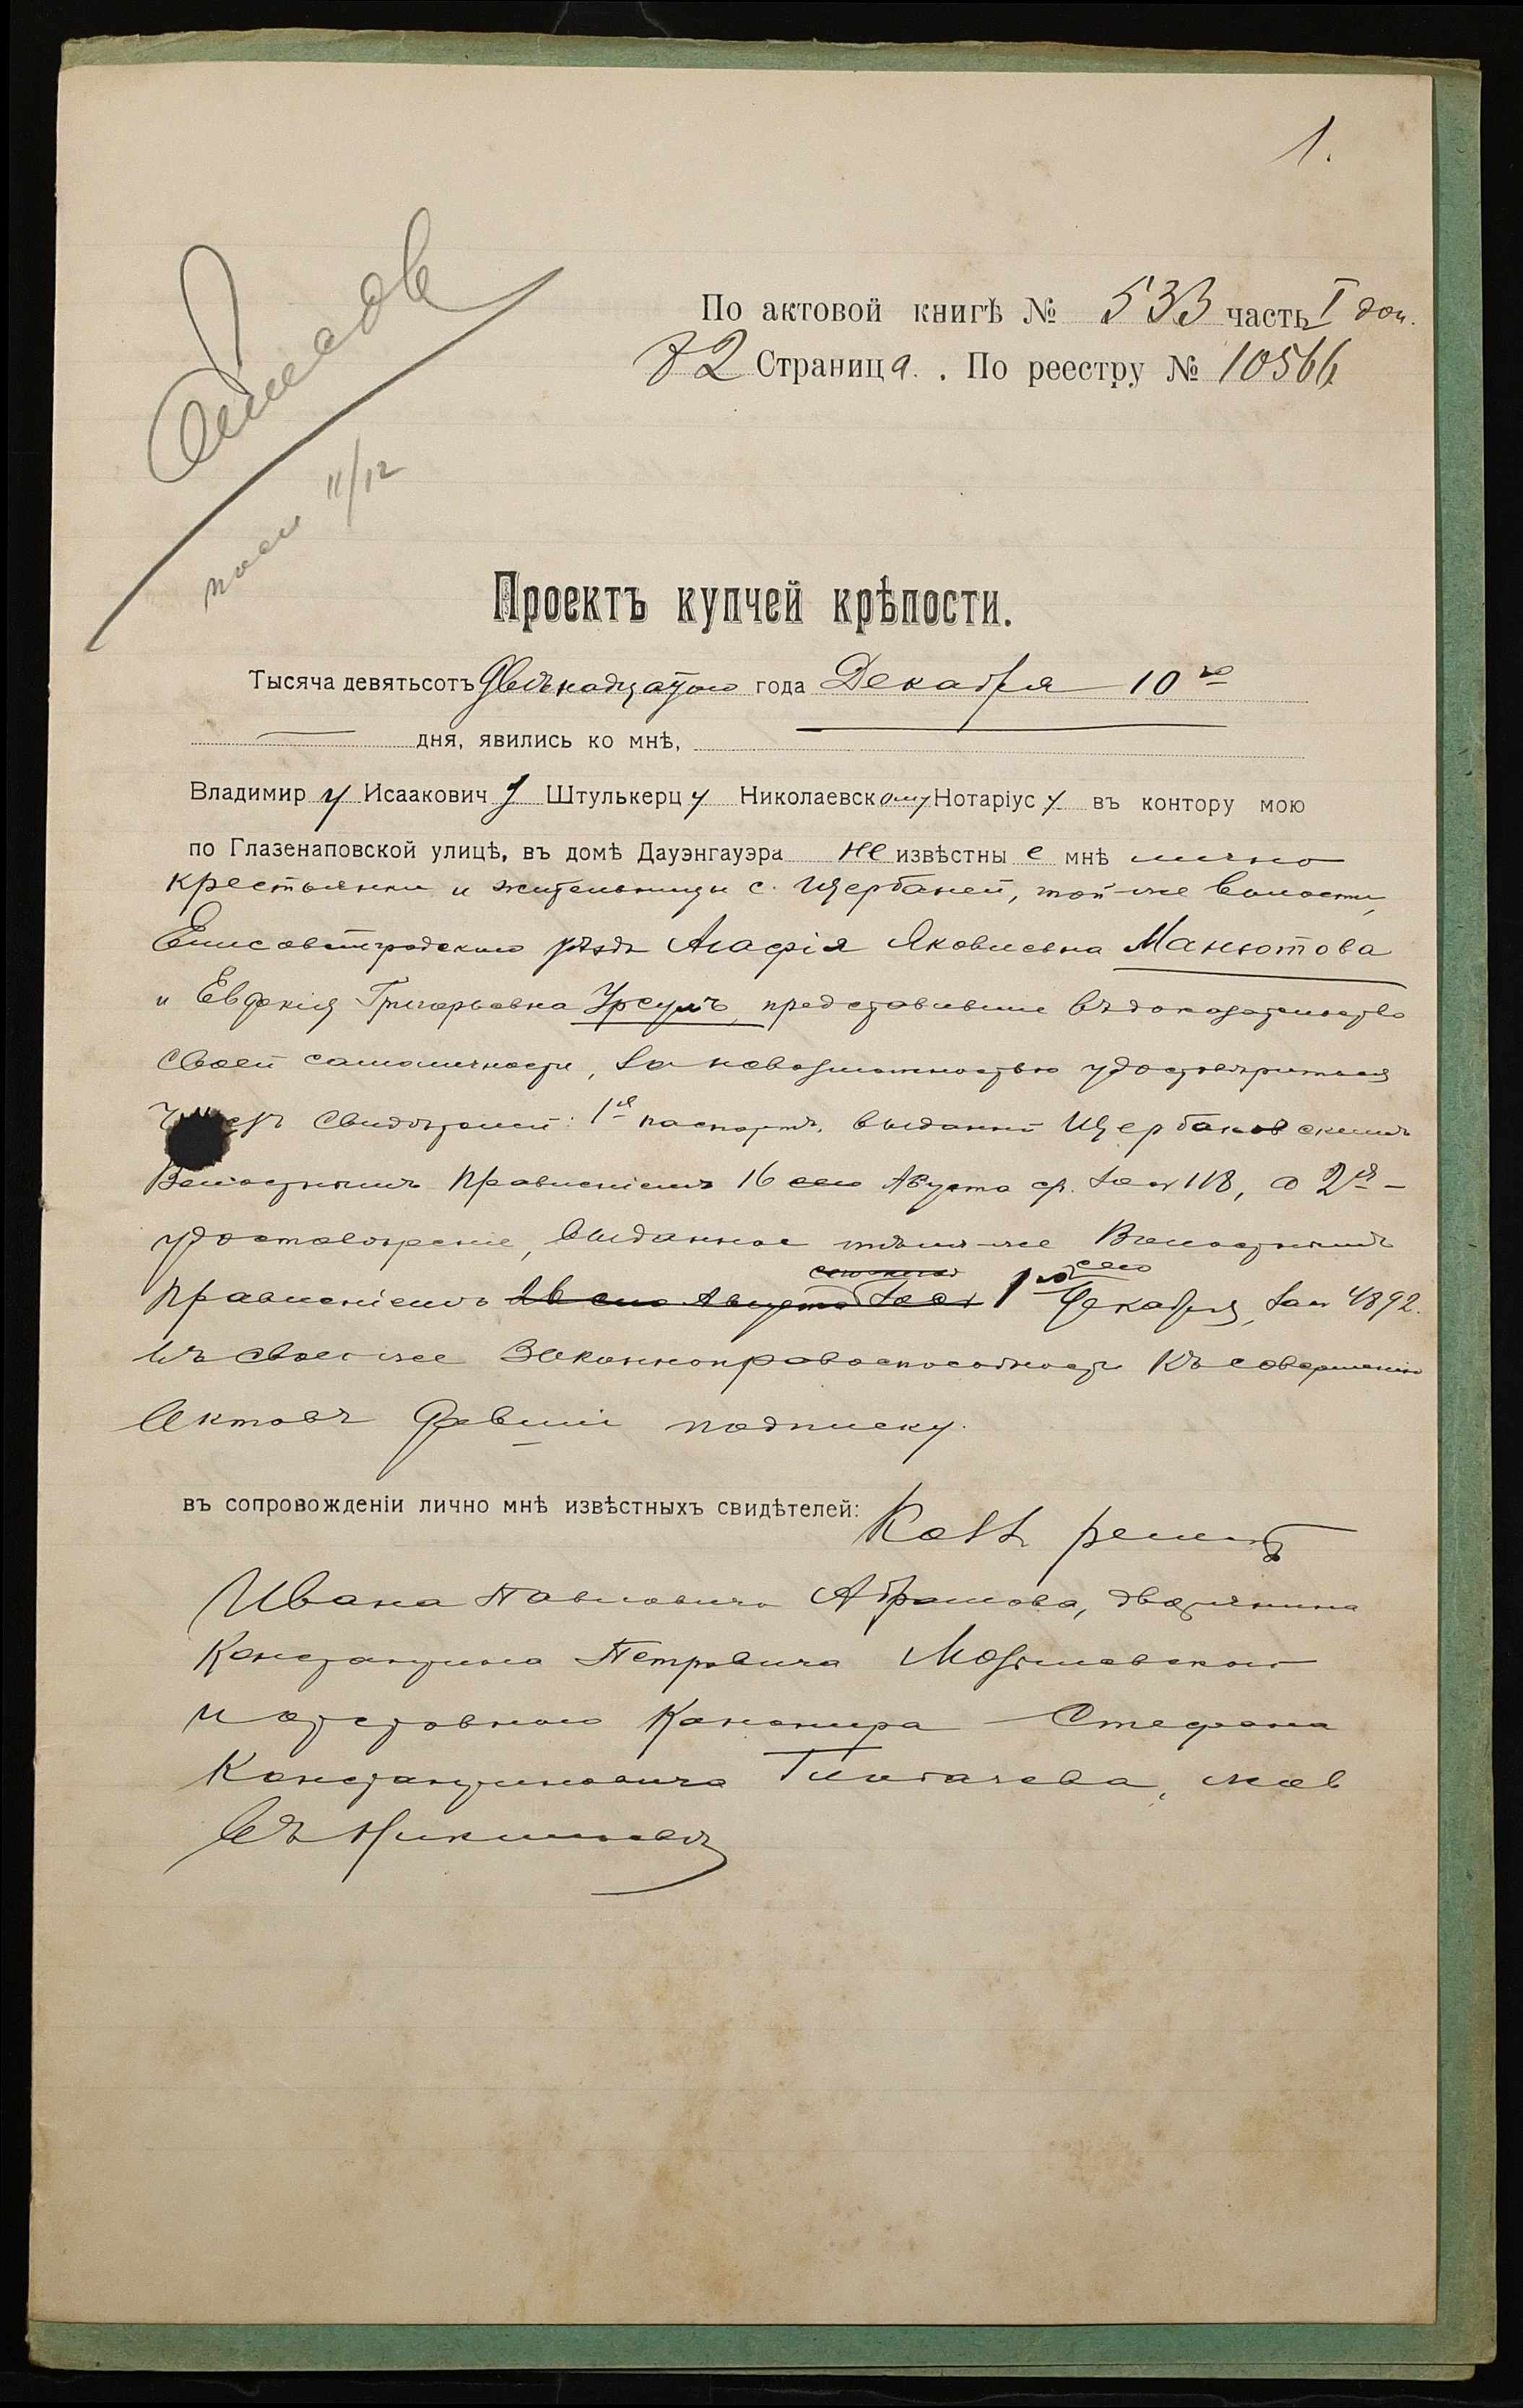 1.
По актовой книгѣ № 533 часть I доп.
82 Страница. По реестру № 10566
11/12
Проектъ купчей крѣпости.
Тысяча девятьсотъ двѣнадцатого года Декабря 10го
дня, явились ко мнѣ,
Владимиру Исааковичу Штулькерцу Николаевскому Нотаріусу въ контору мою
по Глазенаповской улицѣ, въ домѣ Дауэнгауэра не извѣстные мнѣ лично
крестьянки и жительницы с. Щербаней, той-же волости,
Елисаветградского уѣзда Агафія Яковлевна Манютова
и Евдокія Григорьевна Урсулъ, представившие въ доказательство
своей самоличности, за невозможностью удостовѣриться
чрезъ свидѣтелей: 1я паспортъ, выданный Щербановскимъ
Волостнымъ Правленіемъ 16 сего Августа за № 118, а 2я -
удостовѣреніе, выданное тѣмъ-же Волостнымъ
Правленіемъ 1го сего Декабря, за № 4892.
въ своей же законной правоспособности къ совершенію
актовъ давшіе подписку.
въ сопровожденіи лично мнѣ извѣстныхъ свидѣтелей:
Ивана Павловича Абрамова, дворянина
Константина Петровича
и отставного Канонира Стефана
Константиновича жив
въ Николаевѣ